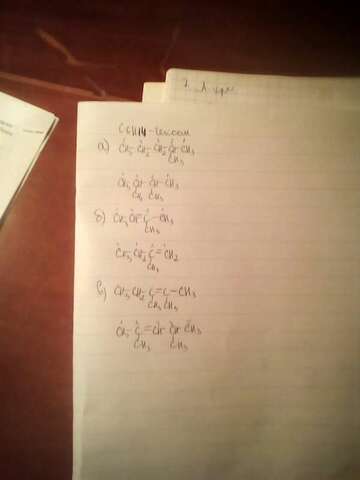 C6H14 - гексан
а) CH3-CH2-CH2-CH-CH3
CH3
CH3-CH-CH-CH3
CH3 CH3
б) CH3-CH=C-CH3
CH3
CH3-CH2-C=CH2
CH3
в) CH3-CH2-C=C-CH3
CH3 CH3
CH3-C=CH-CH-CH3
CH3 CH3